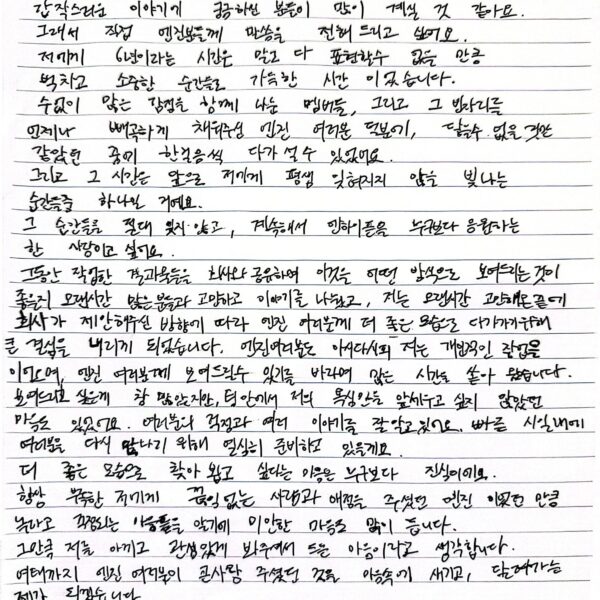 갑작스러운 이야기에 궁금하신 분들이 많이 계실 것 같아요.
그래서 직접 엔진분들께 말씀을 전해 드리고 싶어요.
저에게 6년이라는 시간은 말로 다 표현할수 없을 만큼
벅차고 소중한 순간들로 가득한 시간 이었습니다.
수없이 많은 감정을 함께 나눈 멤버들, 그리고 그 빈자리를
언제나 빼곡하게 채워주신 엔진 여러분 덕분에, 닿을수 없을 것만
같았던 꿈에 한걸음씩 다가 설 수 있었어요.
그리고 그 시간은 앞으로 저에게 평생 잊혀지지 않을 빛나는
순간들중 하나일 거예요.
그 순간들을 절대 잊지 않고, 계속해서 엔하이픈을 누구보다 응원하는
한 사람이고 싶어요.
그동안 작업한 결과물들을 회사와 공유하며 이것을 어떤 방식으로 보여드리는것이
좋을지 오랜시간 많은 분들과 고민하고 이야기를 나눴고, 저는 오랜시간 고민해본 끝에
회사가 제안해주신 방향에 따라 엔진 여러분께 더 좋은 모습으로 다가가기위해
큰 결심을 내리게 되었습니다. 엔진여러분도 아시다시피 저는 개인적인 작업을
이어오며, 엔진 여러분께 보여드릴수 있기를 바라며 많은 시간을 쏟아 왔습니다.
보여드리고 싶은게 참 많았지만, 팀 안에서 저의 욕심만을 앞세우고 싶지 않았던
마음도 있었어요. 여러분의 걱정과 여러 이야기를 잘 알고 있어요. 빠른 시일내에
여러분을 다시 만나기 위해 열심히 준비하고 있을게요.
더 좋은 모습으로 찾아 뵙고 싶다는 마음은 누구보다 진심이에요.
항상 부족한 저에게 끊임없는 사랑과 애정을 주셨던 엔진 이었던 만큼
놀라고 걱정되는 마음들을 알기에 미안한 마음도 많이 듭니다.
그만큼 저를 아끼고 관심있게 봐주셔서 드는 마음이라고 생각합니다.
여태까지 엔진 여러분이 큰사랑 주셨던 것을 마음속에 새기고, 달려가는
제가 되겠습니다